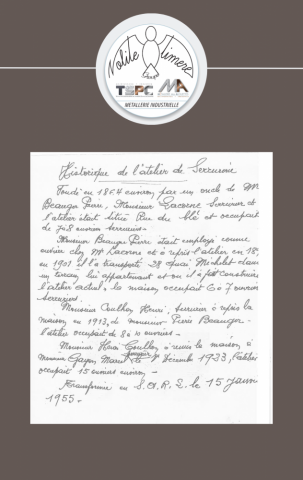 Nolite timere
TSPC MA
METALLERIE INDUSTRIELLE
Historique de l'atelier de Serrurerie
Fondé en 1854 environ, par un oncle de Mr
Beauger Pierre, Monsieur Lacorne Serrurier et
l'atelier était situé Rue du blé et occupait
de 7 à 8 environ serruriers.
Monsieur Beauger Pierre était employé comme
ouvrier chez Mr Lacorne et à repris l'atelier en 18
en 1907 il l'a transporté 38 quai Michelet dans
un terrain lui appartenant et où il a fait construire
l'atelier actuel, la maison occupait 6 à 7 environ
serruriers.
Monsieur Coulhon Henri, serrurier à repris la
maison en 1913, de monsieur Pierre Beauger
l'atelier occupait de 8 à 10 ouvriers.
Monsieur Henri Coulhon à remis la maison à
Monsieur Gayon Marcel le 7 décembre 1933, l'atelier
occupait 15 ouvriers environ.
Transformée en S.A.R.L. le 15 Janvier
1955.